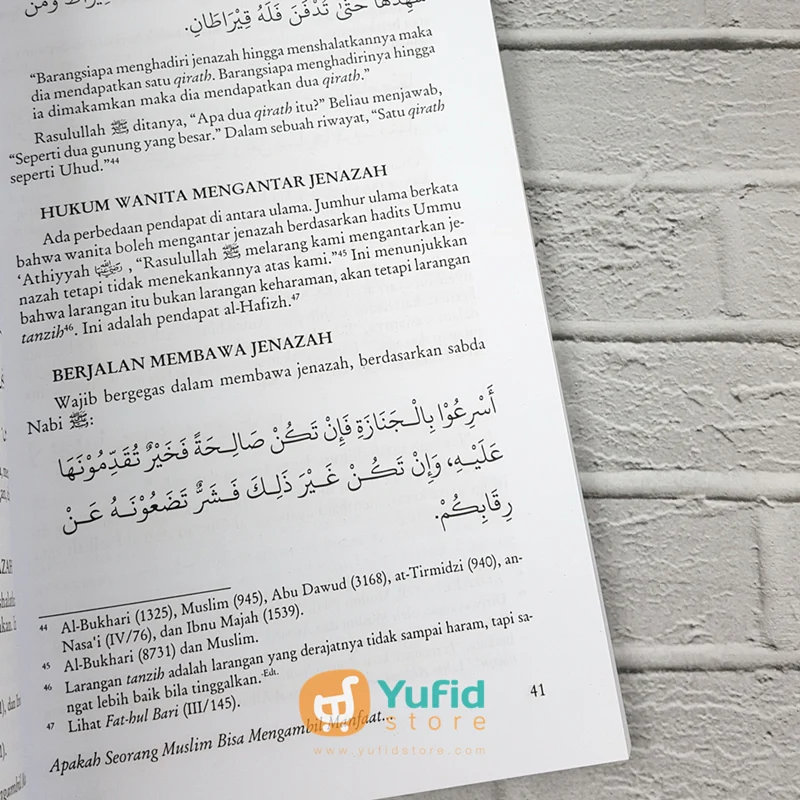 شَهِدَهَا حَتَّى تُدْفَنَ فَلَهُ قِيْرَاطَانِ.
“Barangsiapa menghadiri jenazah hingga menshalatkannya maka
dia mendapatkan satu qirath. Barangsiapa menghadirinya hingga
ia dimakamkan maka dia mendapatkan dua qirath.”
Rasulullah ﷺ ditanya, “Apa dua qirath itu?” Beliau menjawab,
“Seperti dua gunung yang besar.” Dalam sebuah riwayat, “Satu qirath
seperti Uhud.”⁴⁴
HUKUM WANITA MENGANTAR JENAZAH
Ada perbedaan pendapat di antara ulama. Jumhur ulama berkata
bahwa wanita boleh mengantar jenazah berdasarkan hadits Ummu
‘Athiyyah , “Rasulullah ﷺ melarang kami mengantarkan je-
nazah tetapi tidak menekankannya atas kami.”⁴⁵ Ini menunjukkan
bahwa larangan itu bukan larangan keharaman, akan tetapi larangan
tanzih⁴⁶. Ini adalah pendapat al-Hafizh.⁴⁷
BERJALAN MEMBAWA JENAZAH
Wajib bergegas dalam membawa jenazah, berdasarkan sabda
Nabi ﷺ:
أَسْرِعُوْا بِالْجَنَازَةِ فَإِنْ تَكُنْ صَالِحَةً فَخَيْرٌ تُقَدِّمُوْنَهَا
عَلَيْهِ، وَإِنْ تَكُنْ غَيْرَ ذَلِكَ فَشَرٌّ تَضَعُوْنَهُ عَنْ
رِقَابِكُمْ.
44 Al-Bukhari (1325), Muslim (945), Abu Dawud (3168), at-Tirmidzi (940), an-
Nasa'i (IV/76), dan Ibnu Majah (1539).
45 Al-Bukhari (8731) dan Muslim.
46 Larangan tanzih adalah larangan yang derajatnya tidak sampai haram, tapi sa-
ngat lebih baik bila tinggalkan.-Edt.
47 Lihat Fat-hul Bari (III/145).
Apakah Seorang Muslim Bisa Mengambil Manfaat...
41
Yufid
store
www.yufidstore.com